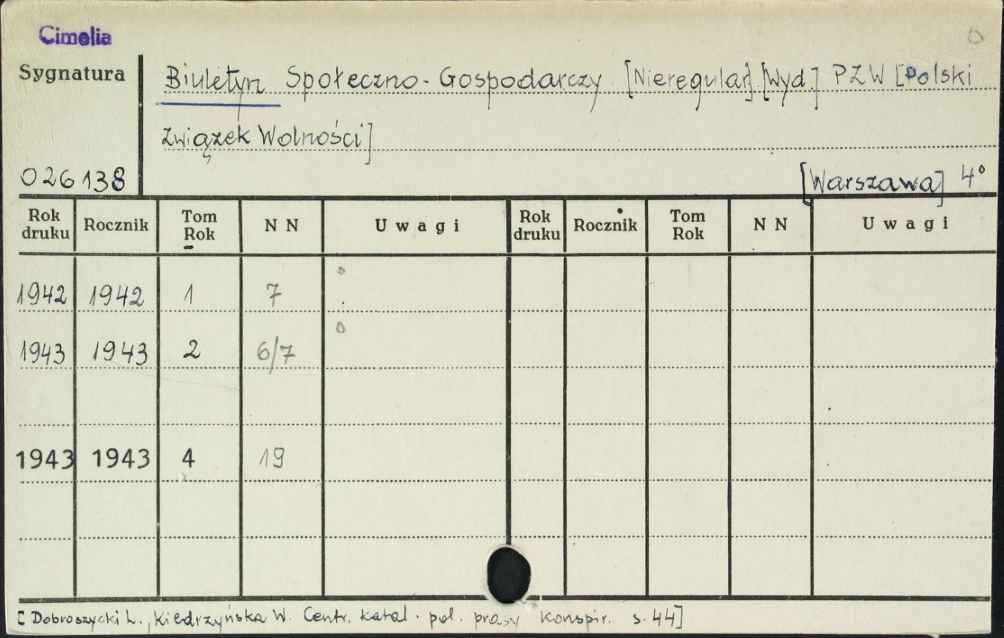 Cimelia
Sygnatura
Biuletyn Społeczno-Gospodarczy. [Nieregular] [Wyd.] PZW [Polski
Związek Wolności]
026138
[Warszawa] 4°
Rok druku Rocznik Tom Rok NN Uwagi Rok druku Rocznik Tom Rok NN Uwagi
1942 1942 1 7
1943 1943 2 6/7
1943 1943 4 19
[Dobroszycki L., Kiedrzyńska W. Centr. katal. pol. prasy konspir. s. 44]